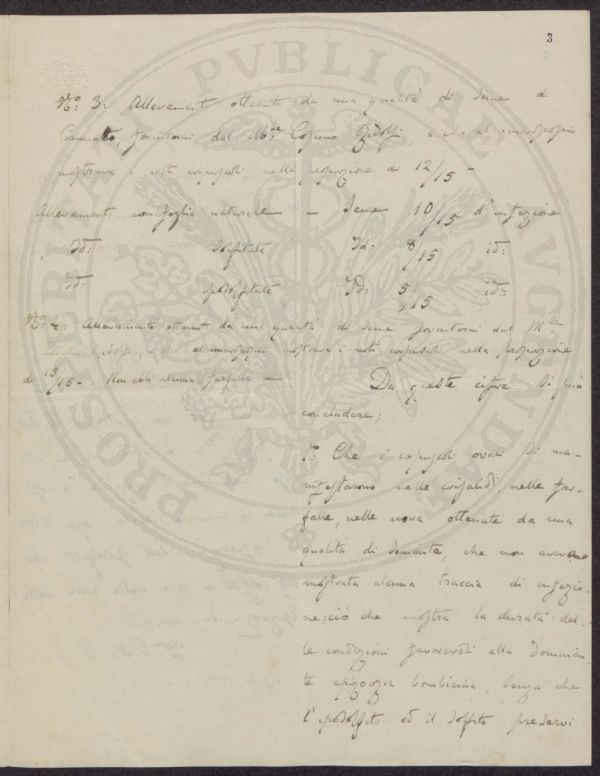 3
N.º 3: Allevamenti ottenuti da una qualità di seme di
fornitomi dal M.se Cosimo Ridolfi, e che al microscopio
mostrava i noti corpuscoli nella proporzione di 12/15 -
Allevamento con foglia naturale — Seme 10/15 d'infezione
Id: solfitata Id: 8/15 id:
Id: iposolfitata Id: 5/15 id:
N.º 4: Allevamenti ottenuti da una quantità di seme fornitomi dal M.se
Cosimo Ridolfi, e che al microscopio mostrava i noti corpuscoli nella proporzione
di 15/15 -. Non ebbi alcuna farfalla —
Da queste cifre si può
concludere;
1.º Che i corpuscoli ovali si ma-
nifestarono nelle crisalidi, nelle far-
falle, nelle uova ottenute da una
qualità di semente, che non aveva
mostrata alcuna traccia di infezio-
ne; ciò che mostra la durata del-
le condizioni favorevoli alla dominan-
te epizoozia bombicina, senza che
l'iposolfito od il solfito preservi
PROSPERITATI PVBLICAE AVGENDAE